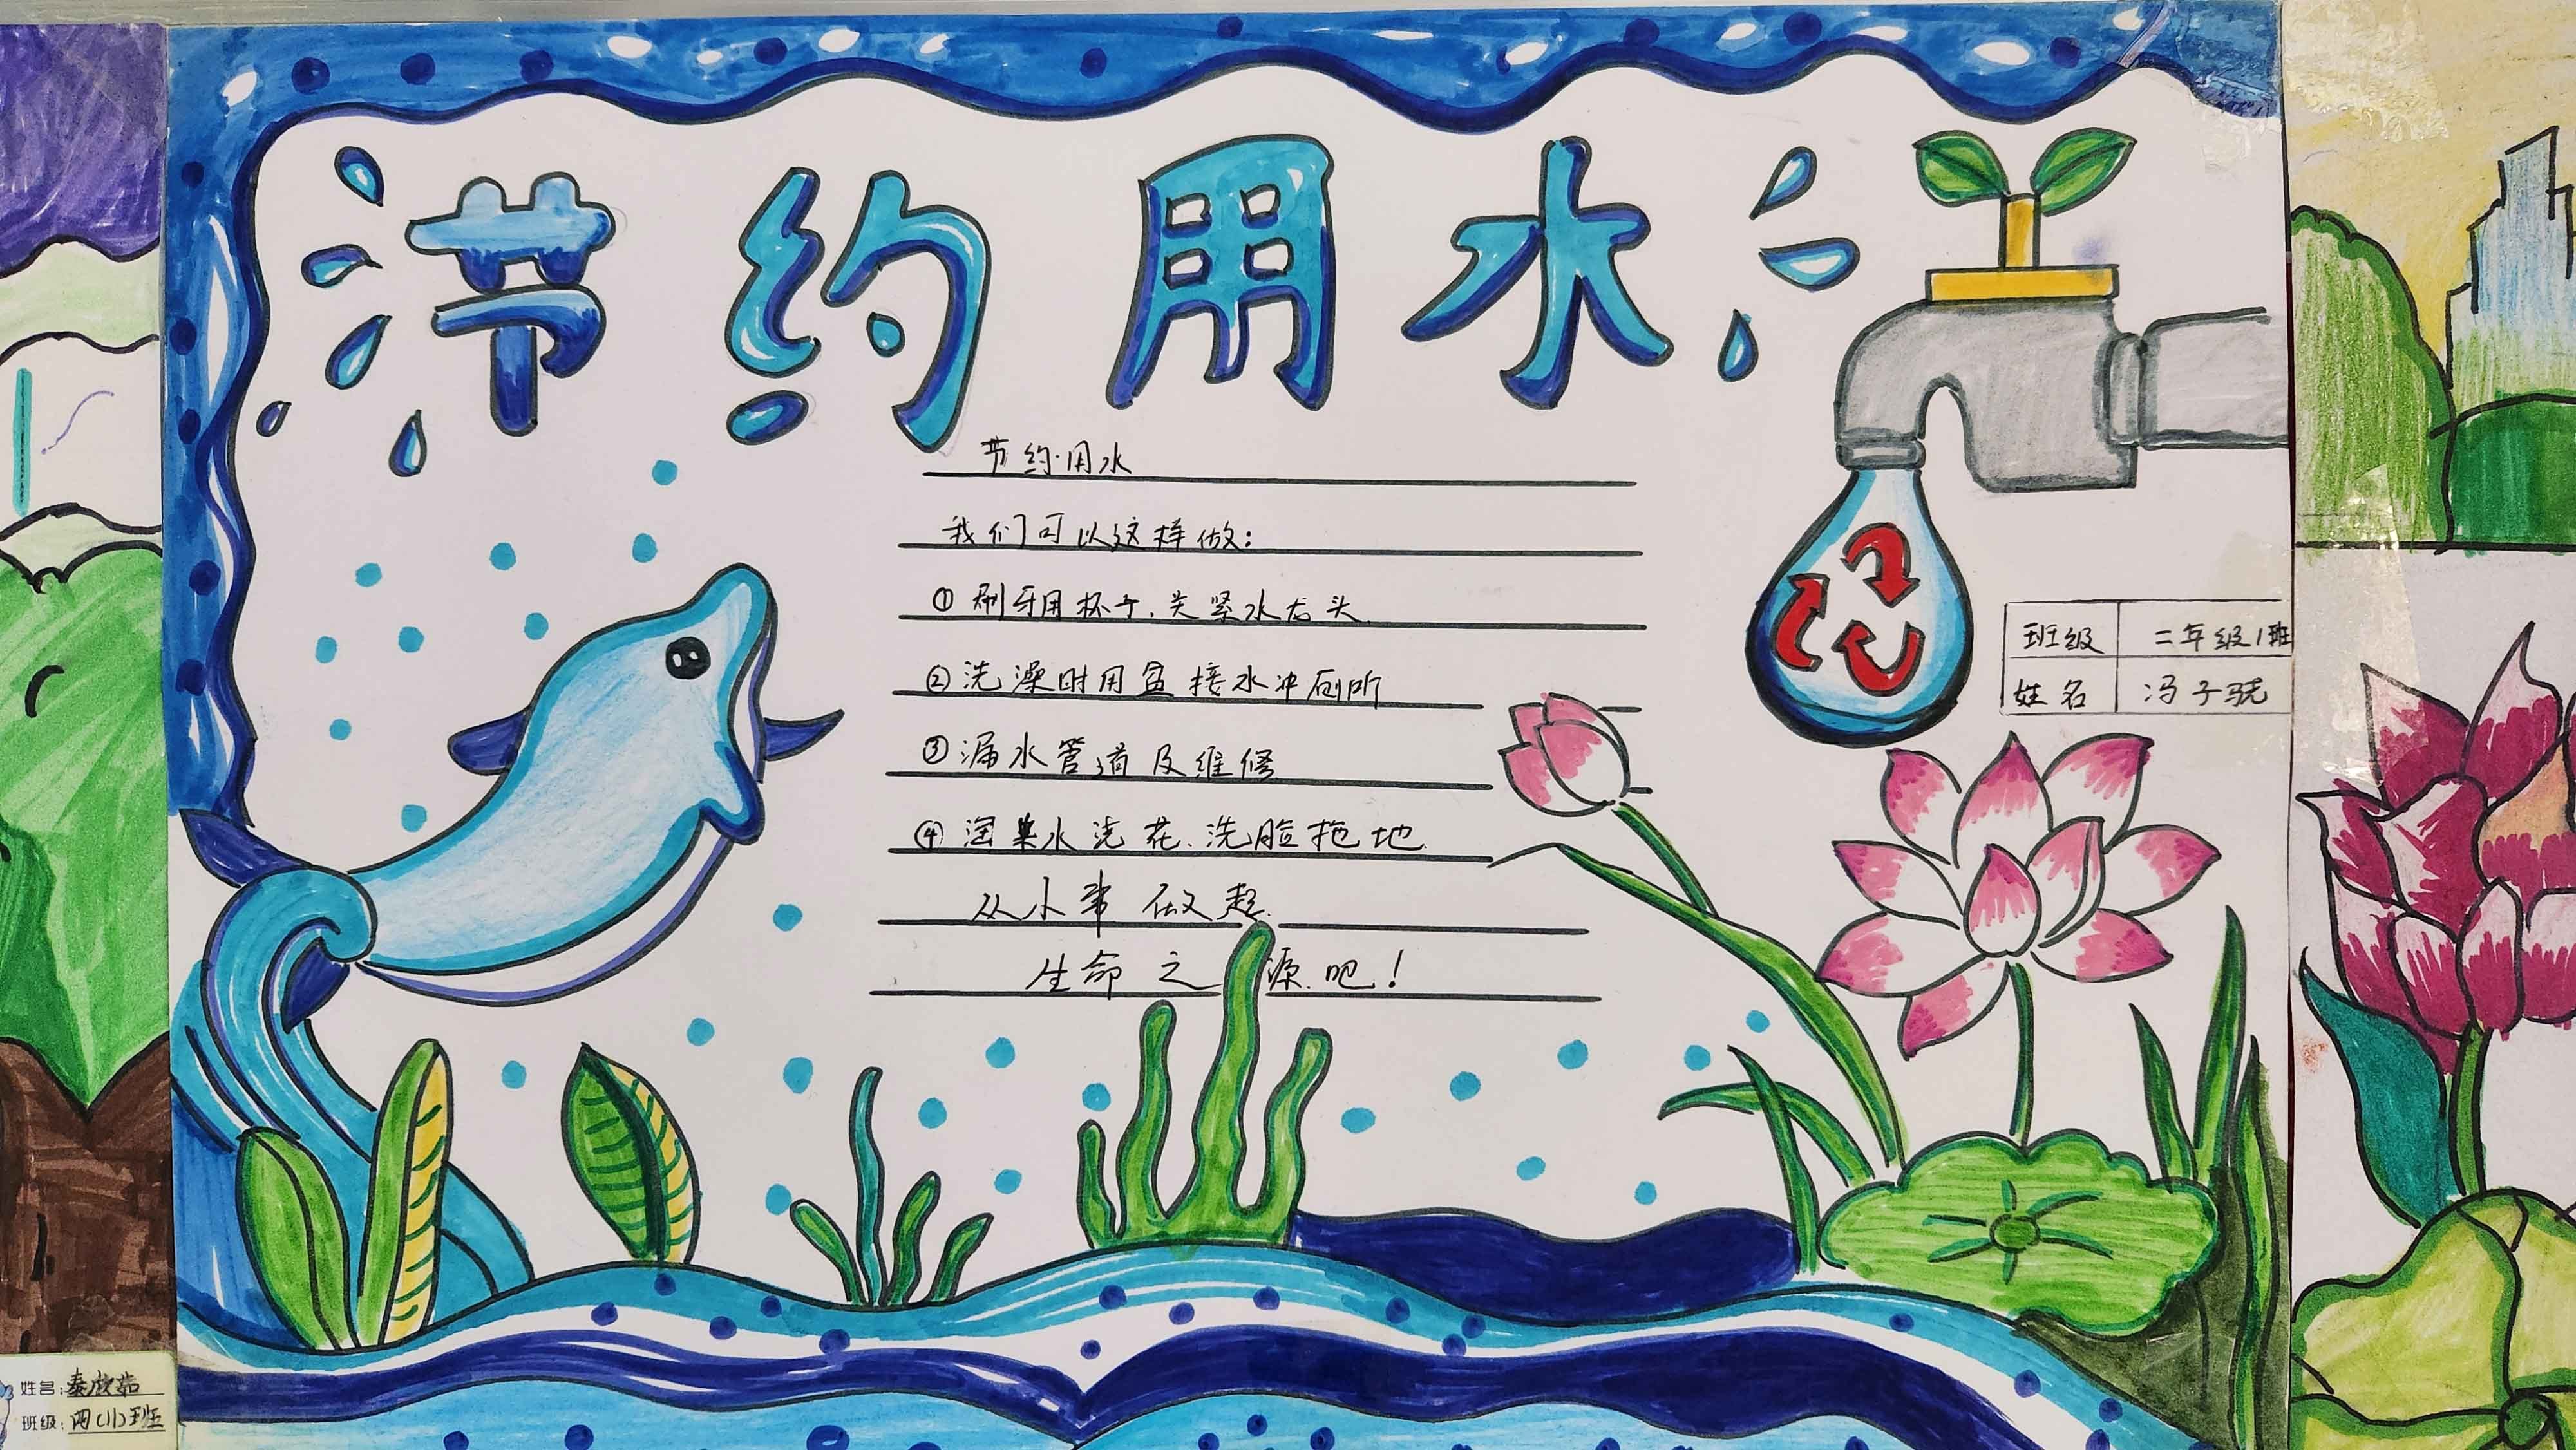 节约用水
节约用水
我们可以这样做:
①刷牙用杯子,关紧水龙头.
②洗澡时用盆接水冲厕所
③漏水管道及维修
④淘米水浇花.洗脸拖地.
从小事做起.
生命之源吧!
班级 二年级1班
姓名 冯子骁
姓名:秦欣茹
班级: